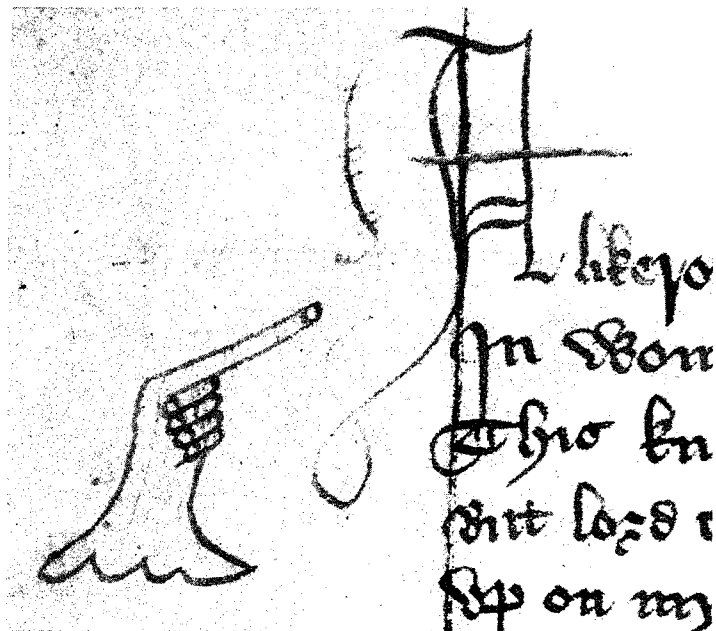 A likero
In Wom
This kn
But lord
Vp on my